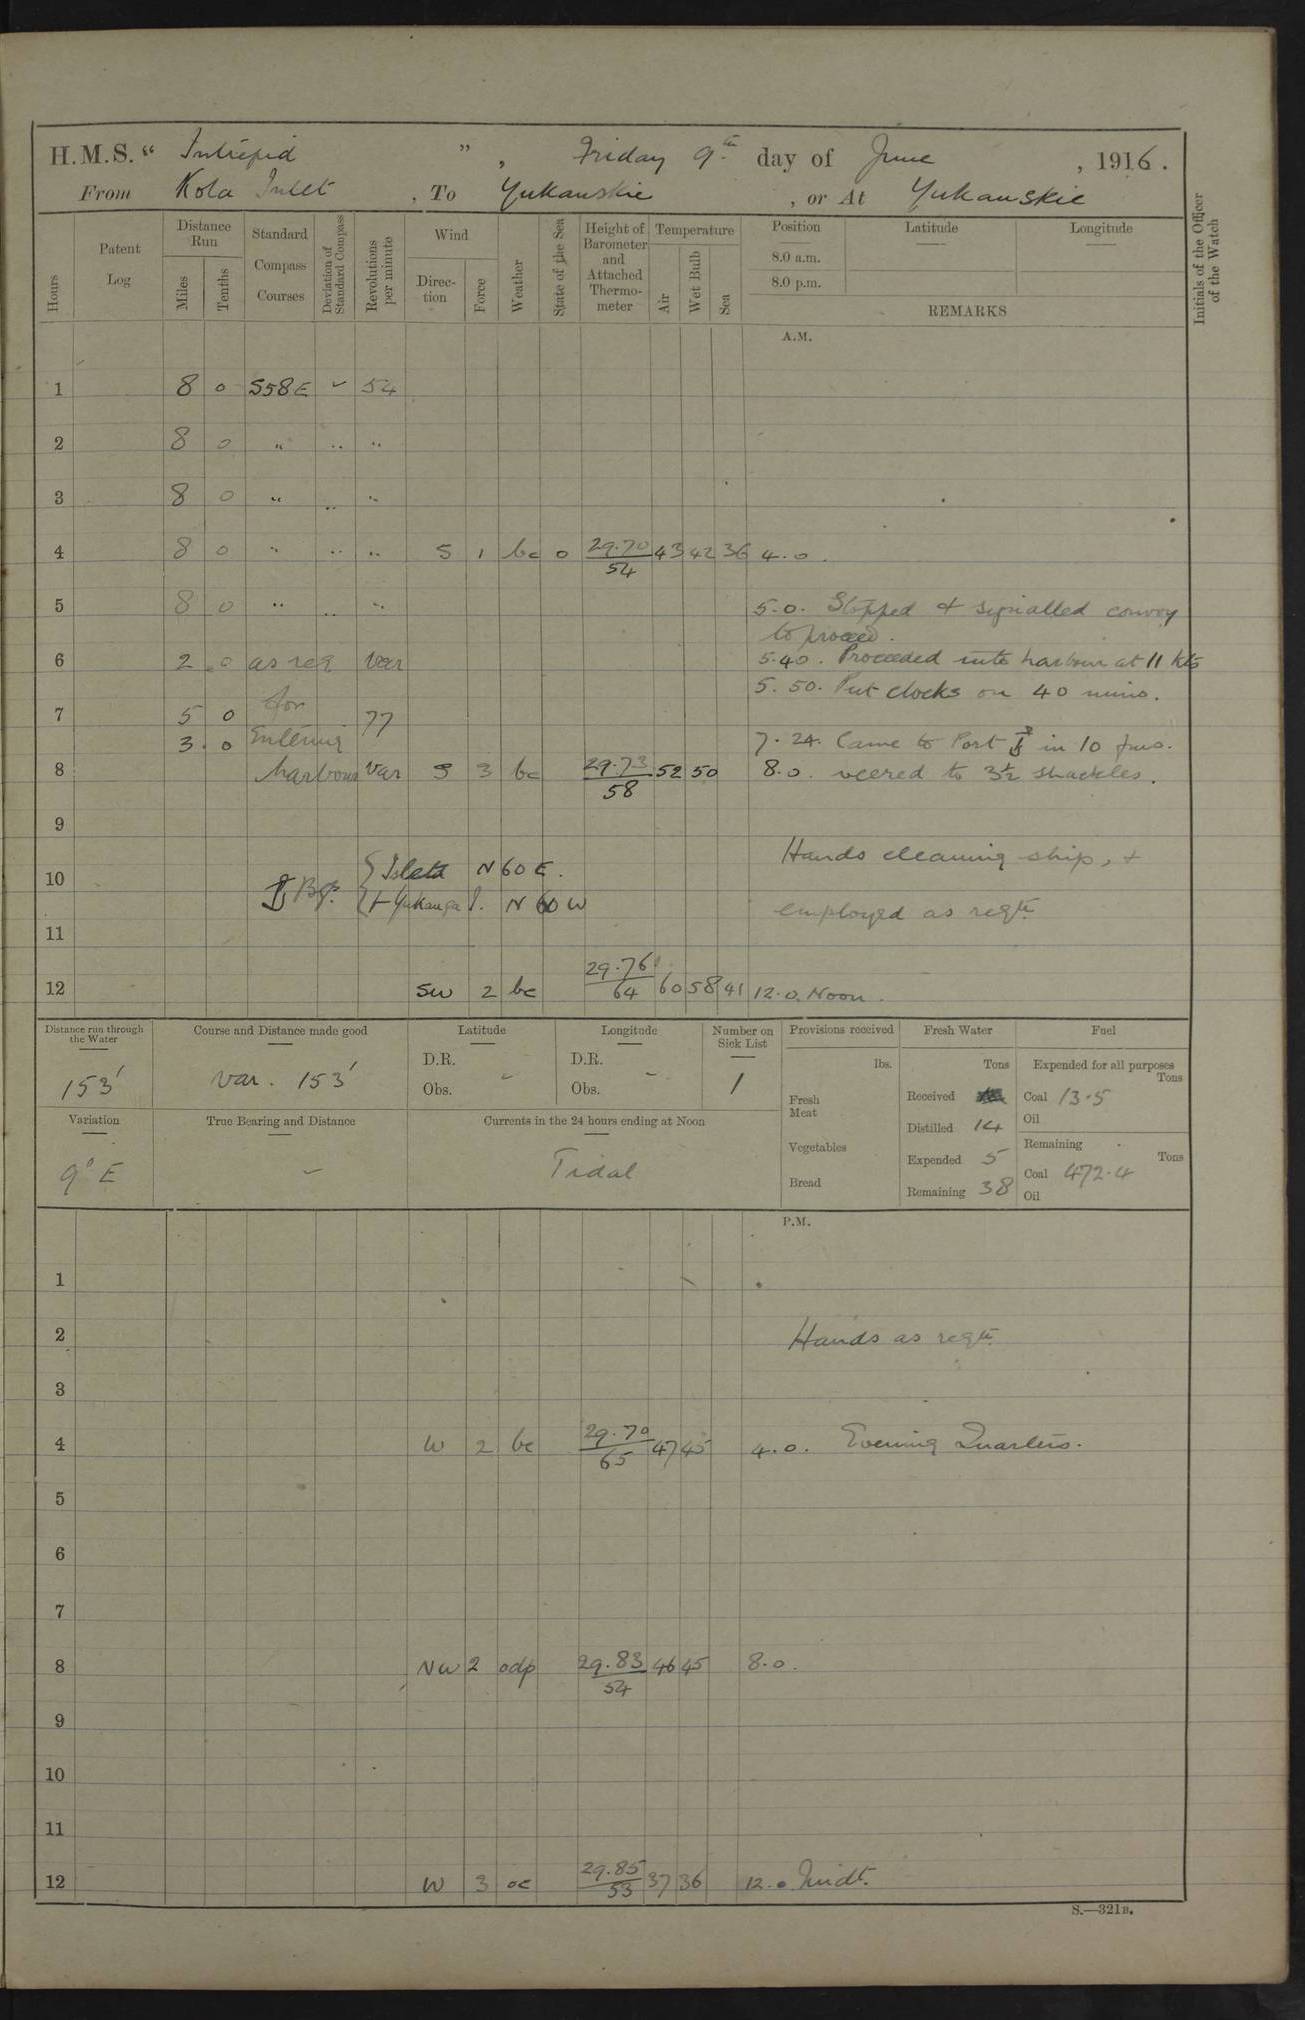 H.M.S. “ Intrepid ” , Friday 9th day of June , 1916.
From Kola Inlet , To Yukanskie , or At Yukanskie
Hours
Patent Log
Distance Run
Miles
Tenths
Standard Compass Courses
Deviation of Standard Compass
Revolutions per minute
Wind
Direction
Force
Weather
State of the Sea
Height of Barometer and Attached Thermometer
Temperature
Air
Wet Bulb
Sea
Position
8.0 a.m.
8.0 p.m.
Latitude
Longitude
REMARKS
Initials of the Officer of the Watch
A.M.
1 8 0 S58E ✓ 54
2 8 0 " " "
3 8 0 " " "
4 8 0 " " " S 1 bc 0 29.70/54 43 42 36 4.0.
5 8 0 " " " 5.0. Stopped & signalled convoy
to proceed.
6 2 0 as req var 5.40. Proceeded into harbour at 11 kts
5.50. Put clocks on 40 mins.
7 5 0 for 77
3.0 Entering 7.24. Came to Port ⚓ in 10 fms.
8 harbour var S 3 bc 29.73/58 52 50 8.0. veered to 3½ shackles.
9
Hands cleaning ship, &
10 ⚓ Bgs. { Isleta N 60 E.
{ + Yukanga I. N 60 W
employed as reqte
11
12 SW 2 bc 29.76/64 60 58 41 12.0. Noon.
Distance run through the Water
153'
Course and Distance made good
Var. 153'
Latitude
D.R.
Obs. -
Longitude
D.R.
Obs. -
Number on Sick List
1
Provisions received
lbs.
Fresh Meat
Vegetables
Bread
Fresh Water
Tons
Received
Distilled 14
Expended 5
Remaining 38
Fuel
Expended for all purposes
Tons
Coal 13.5
Oil
Remaining
Tons
Coal 472.4
Oil
Variation
9° E
True Bearing and Distance
-
Currents in the 24 hours ending at Noon
Tidal
P.M.
1
2 Hands as reqte
3
4 W 2 bc 29.70/65 47 45 4.0. Evening Quarters.
5
6
7
8 NW 2 odp 29.83/54 46 45 8.0.
9
10
11
12 W 3 oc 29.85/53 37 36 12.0 Midt.
S.—321B.